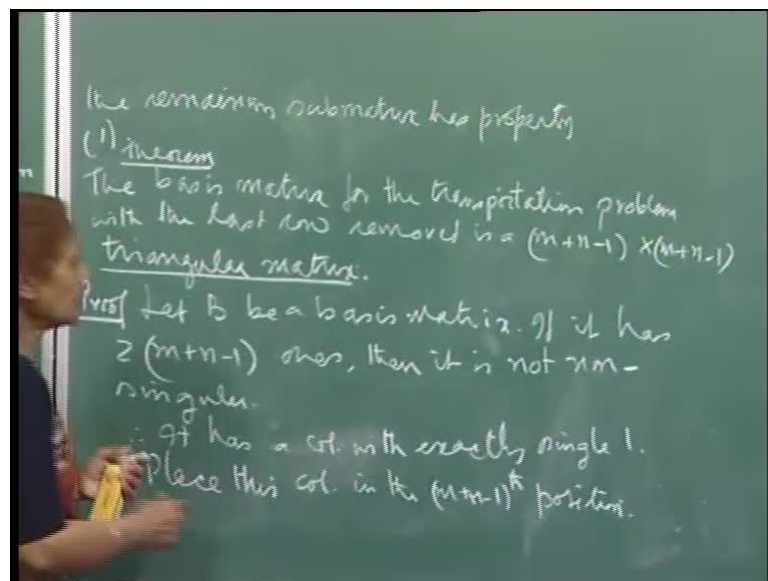 the remaining submatrix has property
(1) Theorem
The basis matrix for the transportation problem
with the last row removed is a (m+n-1) x (m+n-1)
triangular matrix.
Proof Let B be a basis matrix. If it has
2(m+n-1) ones, then it is not non-
singular.
∴ It has a col. with exactly single 1.
Place this col. in the (m+n-1)th position.